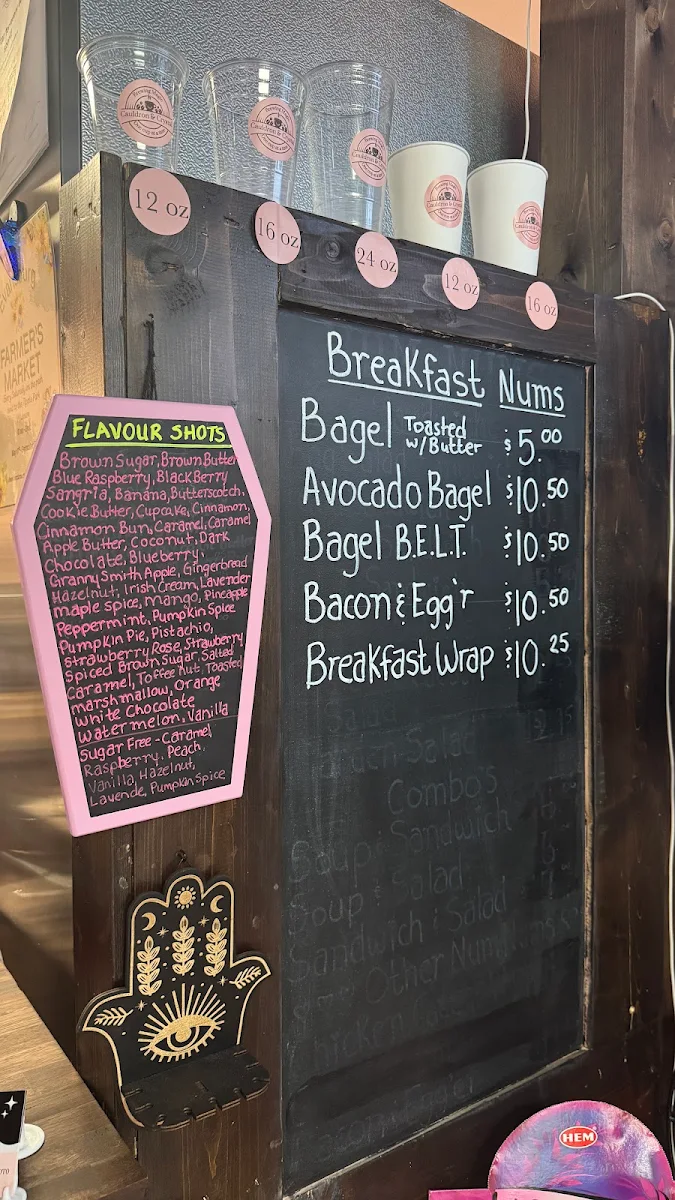 Cauldron & Crystal
12 oz
16 oz
24 oz
12 oz
16 oz
FARMER'S
MARKET
FLAVOUR SHOTS
Brown Sugar, Brown Butter
Blue Raspberry, BlackBerry
Sangria, Banana, Butterscotch,
Cookie Butter, Cupcake, Cinnamon,
Cinnamon Bun, Caramel, Caramel
Apple Butter, Coconut, Dark
Chocolate, Blueberry,
Granny Smith Apple, Gingerbread
Hazelnut, Irish Cream, Lavender
maple spice, mango, Pineapple
Peppermint, Pumpkin Spice
Pumpkin Pie, Pistachio,
Strawberry Rose, Strawberry
Spiced Brown Sugar, Salted
Caramel, Toffee nut, Toasted
marshmallow, Orange
White Chocolate
Watermelon, Vanilla
Sugar Free - Caramel
Raspberry, Peach,
Vanilla, Hazelnut,
Lavende, Pumpkin Spice
Breakfast Nums
Bagel Toasted w/Butter $5.00
Avocado Bagel $10.50
Bagel B.E.L.T. $10.50
Bacon & Egg'r $10.50
Breakfast Wrap $10.25
Salad
Combo's
Soup & Sandwich
Soup & Salad
Sandwich & Salad
Other Nums
HEM